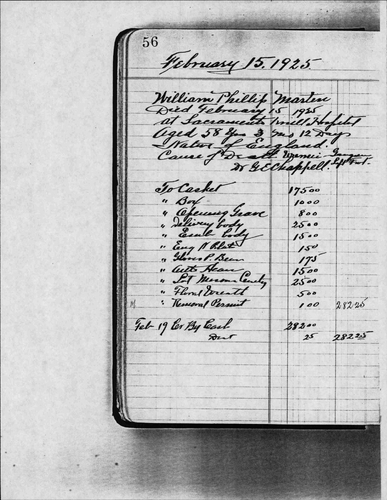 56
February 15, 1925
William Phillip Marten
Died February 15 1925
at Sacramento Hospital
Aged 58 Yrs 3 Ms 12 Days
Native of England
Cause of Death
Dr E C Chappell
To Casket 175 00
" Box 10 00
" Opening Grave 8 00
" Delivering body 25 00
" Emb body 15 00
" Eng N Plate 1 50
" Gloves P. Bear 1 75
" Auto Hearse 15 00
" Lot Masonic Cemetry 25 00
" Floral Wreath 5 00
" Removal Permit 1 00 282 25
Feb 19 Cr By Cash 282 00
Dist 25 282 25